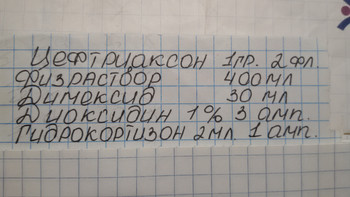 Цефтриаксон 1гр. 2 фл.
Физраствор 400 мл
Димексид 30 мл
Диоксидин 1% 3 амп.
Гидрокортизон 2мл 1 амп.